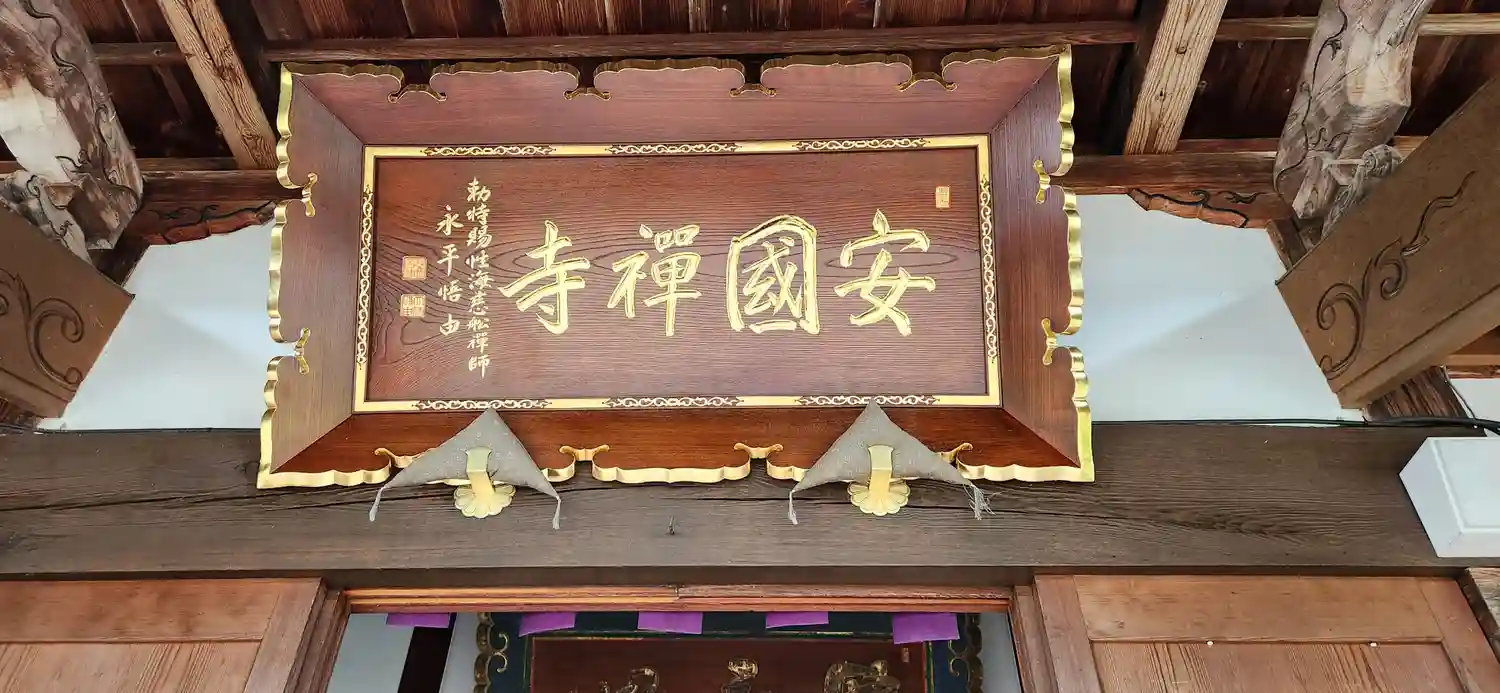 安國禪寺
勅特賜性海慈船禪師
永平悟由